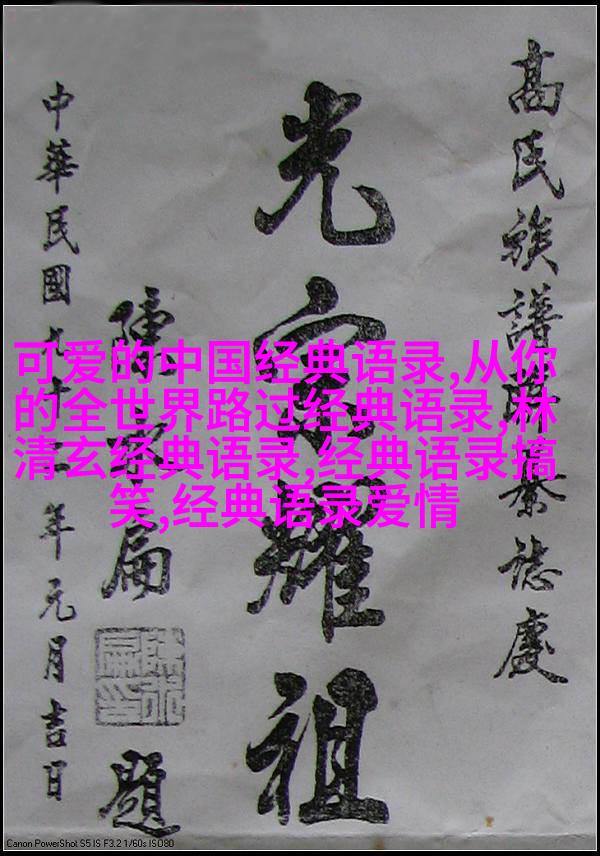 高氏族譜纂誌慶
光宗耀祖
題
中華民國十年元月吉日
可爱的中国经典语录,从你
的全世界路过经典语录,林
清玄经典语录,经典语录搞
笑,经典语录爱情
Canon PowerShot S5 IS F3.2 1/60s ISO80